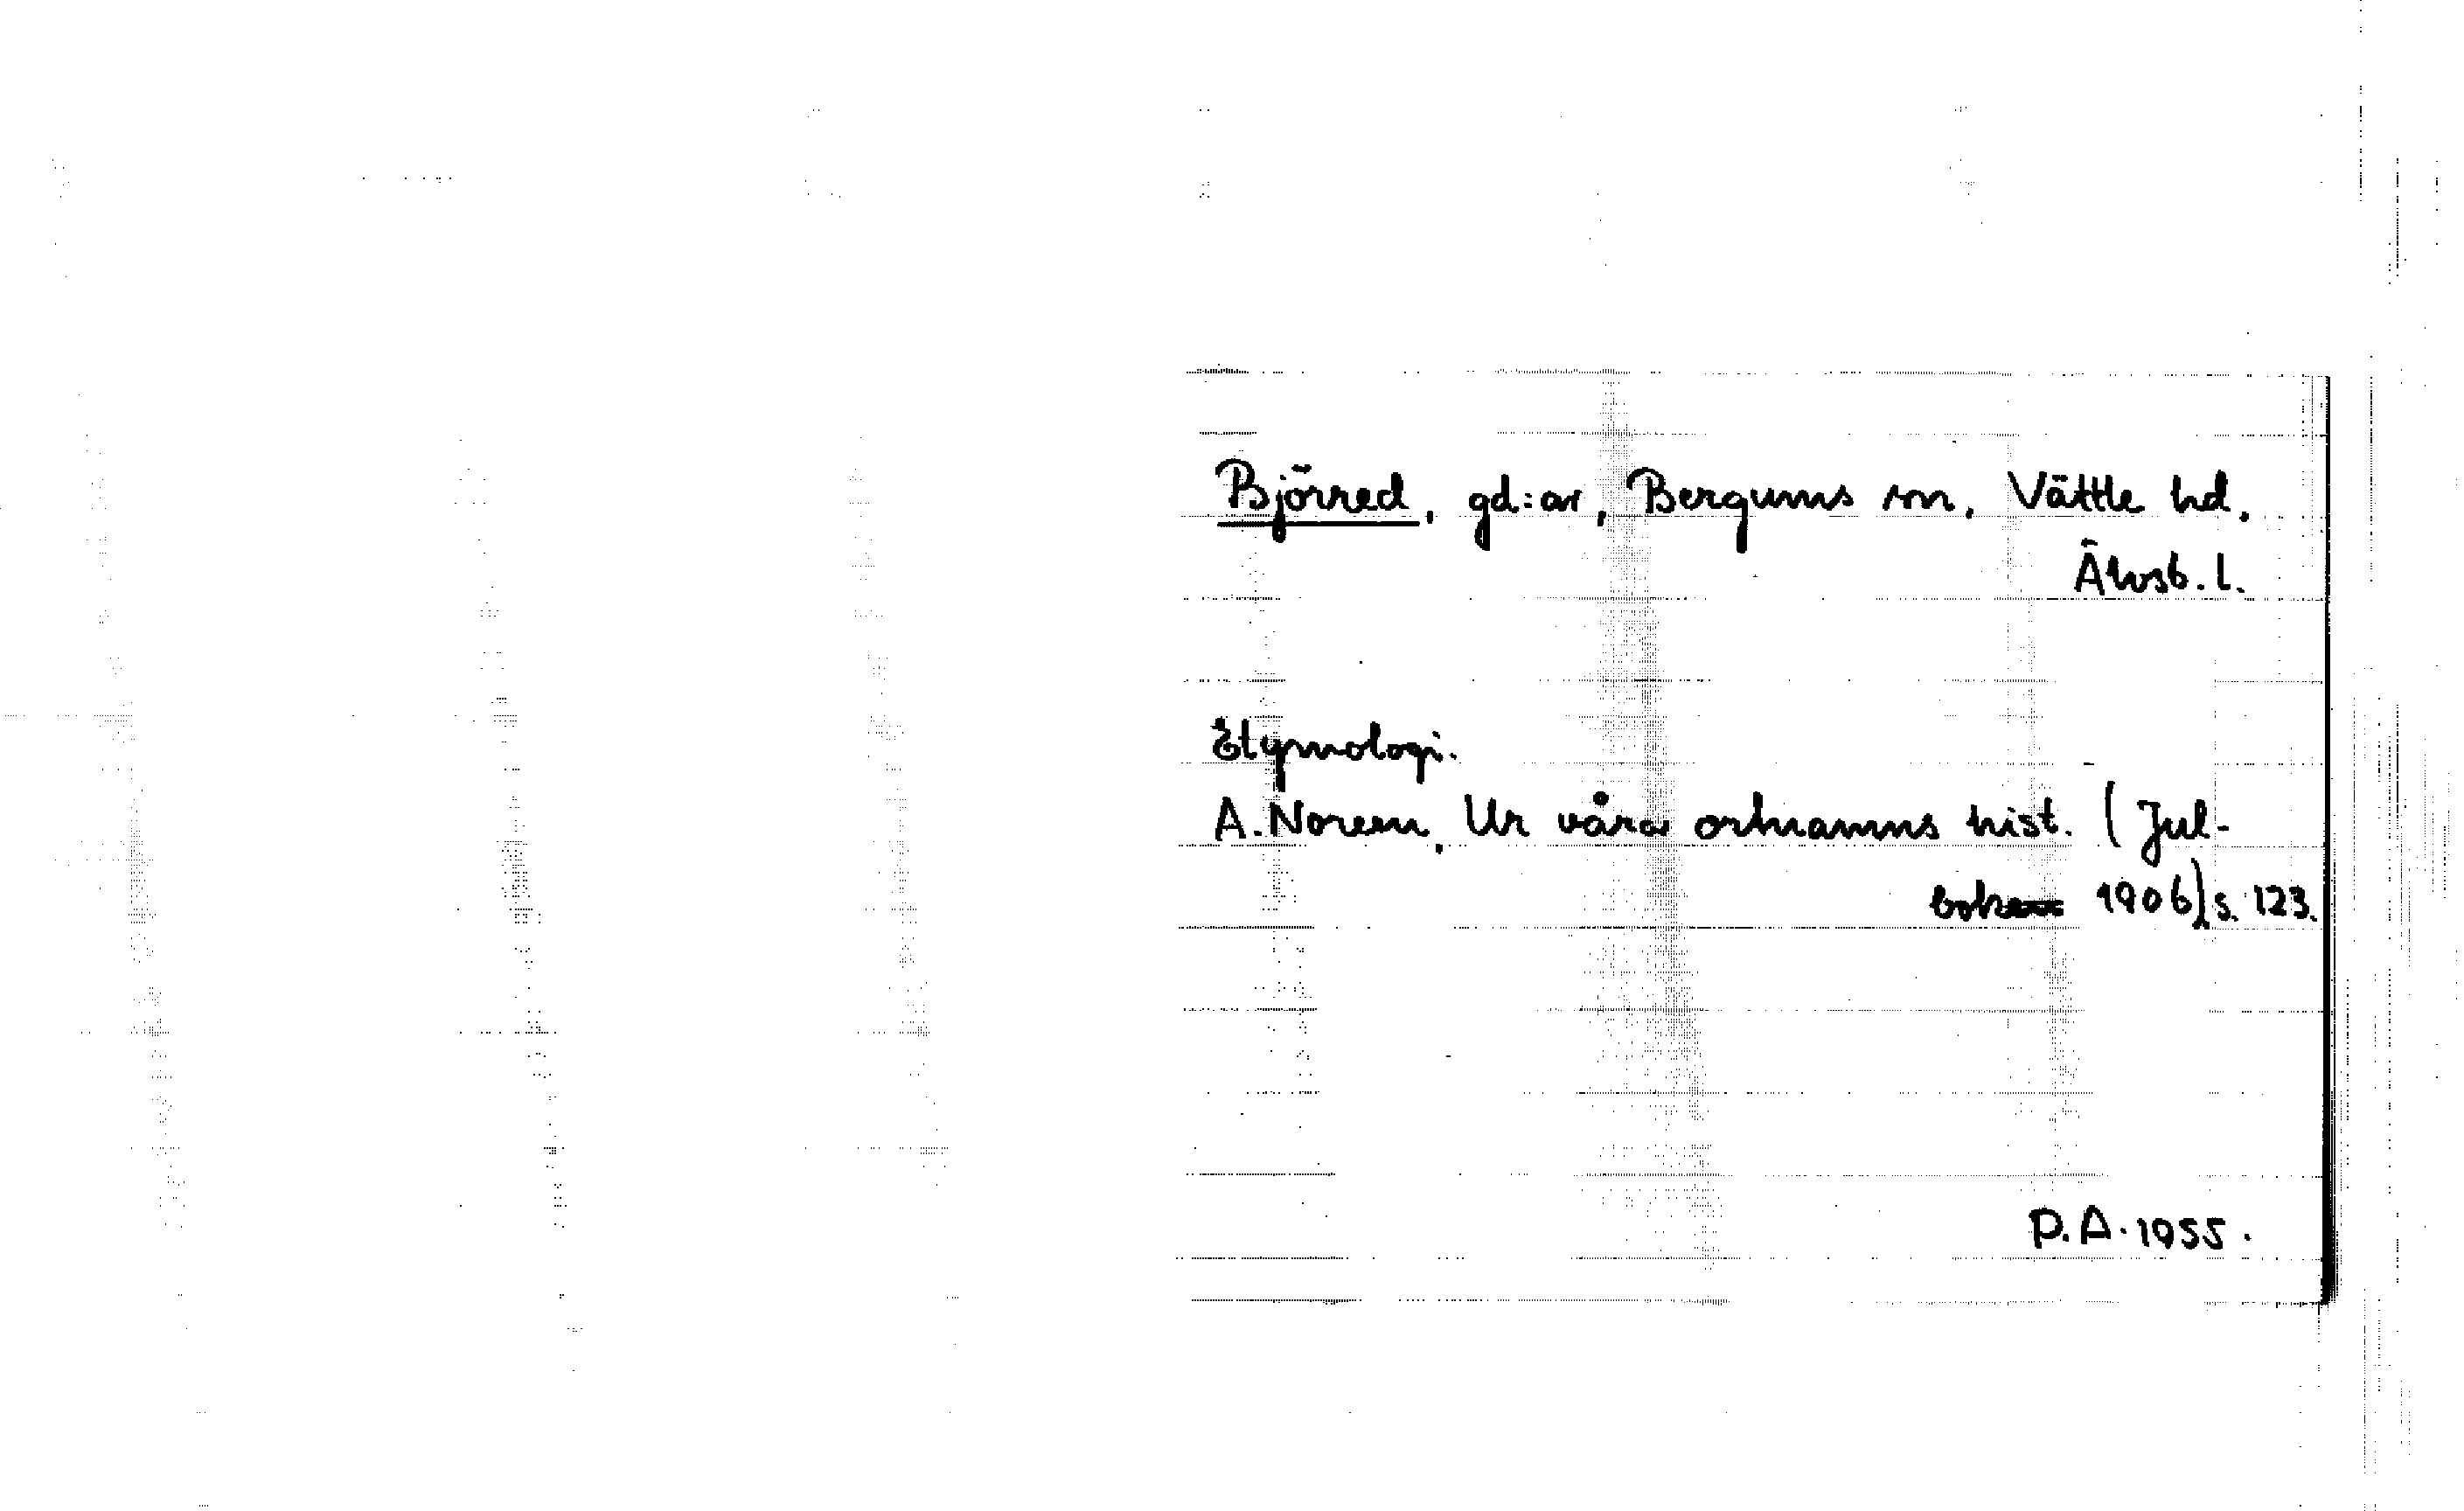 Björred, gd:ar, Bergums sn, Vättle hd,
Älvsb. l.
Etymologi.
A. Noreen, Ur våra ortnamns hist. (Jul-
boken 1906) s. 123.
P.A. 1955.